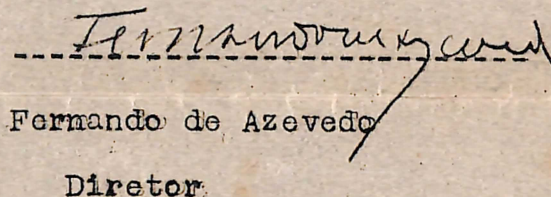 Fernando de Azevedo
Fernando de Azevedo
Diretor